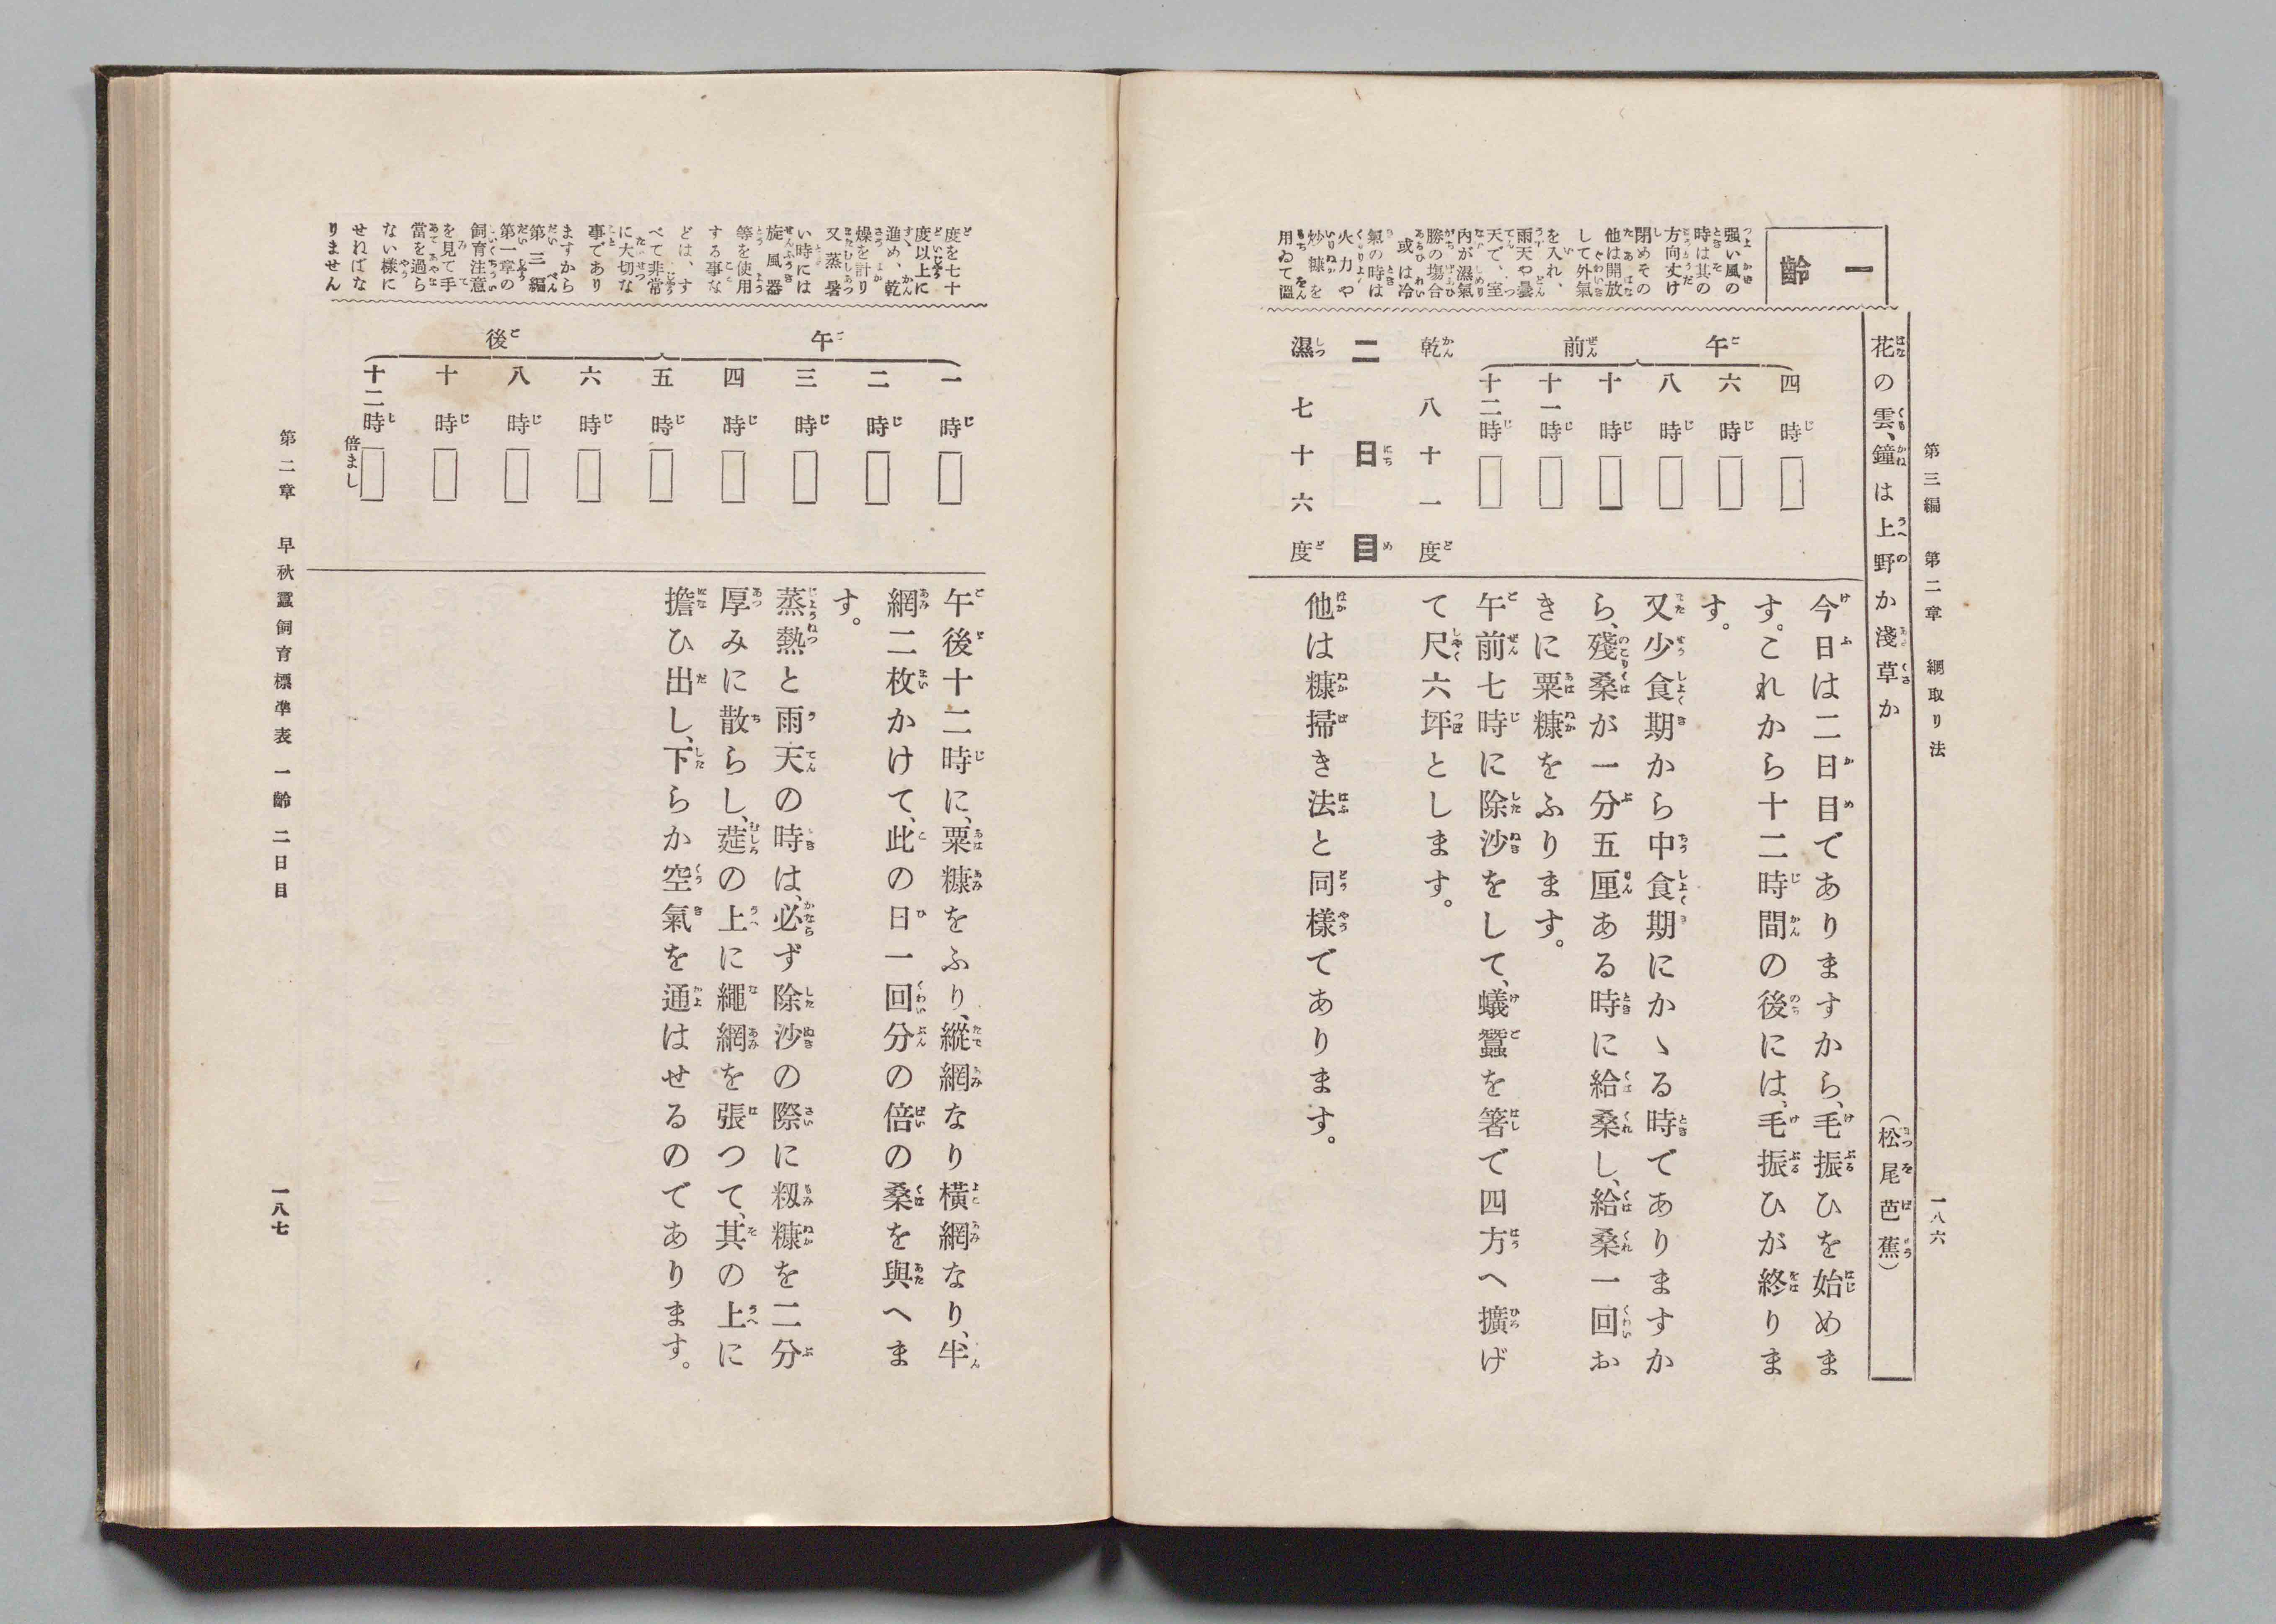 第三編　第二章　網取り法
一八六
花の雲、鐘は上野か淺草か
（松尾芭蕉）
一齡
强い風の
時は其の
方向丈け
閉めその
他は開放
して外氣
を入れ、
雨天や曇
天で、室
內が濕氣
勝の塲合
或は冷
氣の時は
火力や
炒糠を
用ゐて溫
午前
四時
六時
八時
十時
十一時
十二時
乾　八十一度
二日目
濕　七十六度
今日は二日目でありますから、毛振ひを始めま
す。これから十二時間の後には、毛振ひが終りま
す。
又少食期から中食期にかゝる時でありますか
ら、殘桑が一分五厘ある時に給桑し、給桑一回お
きに粟糠をふります。
午前七時に除沙をして、蟻蠶を箸で四方へ擴げ
て尺六坪とします。
他は糠掃き法と同樣であります。
度を七十
度以上に
進め、乾
燥を計り
又蒸暑
い時には
旋風器
等を使用
する事な
どは、す
べて非常
に大切な
事であり
ますから
第三編
第一章の
飼育注意
を見て手
當を過ら
ない樣に
せればな
りません
午後
一時
二時
三時
四時
五時
六時
八時
十時
十二時
倍まし
午後十二時に、粟糠をふり、縱網なり橫網なり、半
網二枚かけて、此の日一回分の倍の桑を與へま
す。
蒸熱と雨天の時は、必ず除沙の際に籾糠を二分
厚みに散らし、莚の上に繩網を張つて、其の上に
擔ひ出し、下らか空氣を通はせるのであります。
第二章　早秋蠶飼育標準表　一齡　二日目
一八七